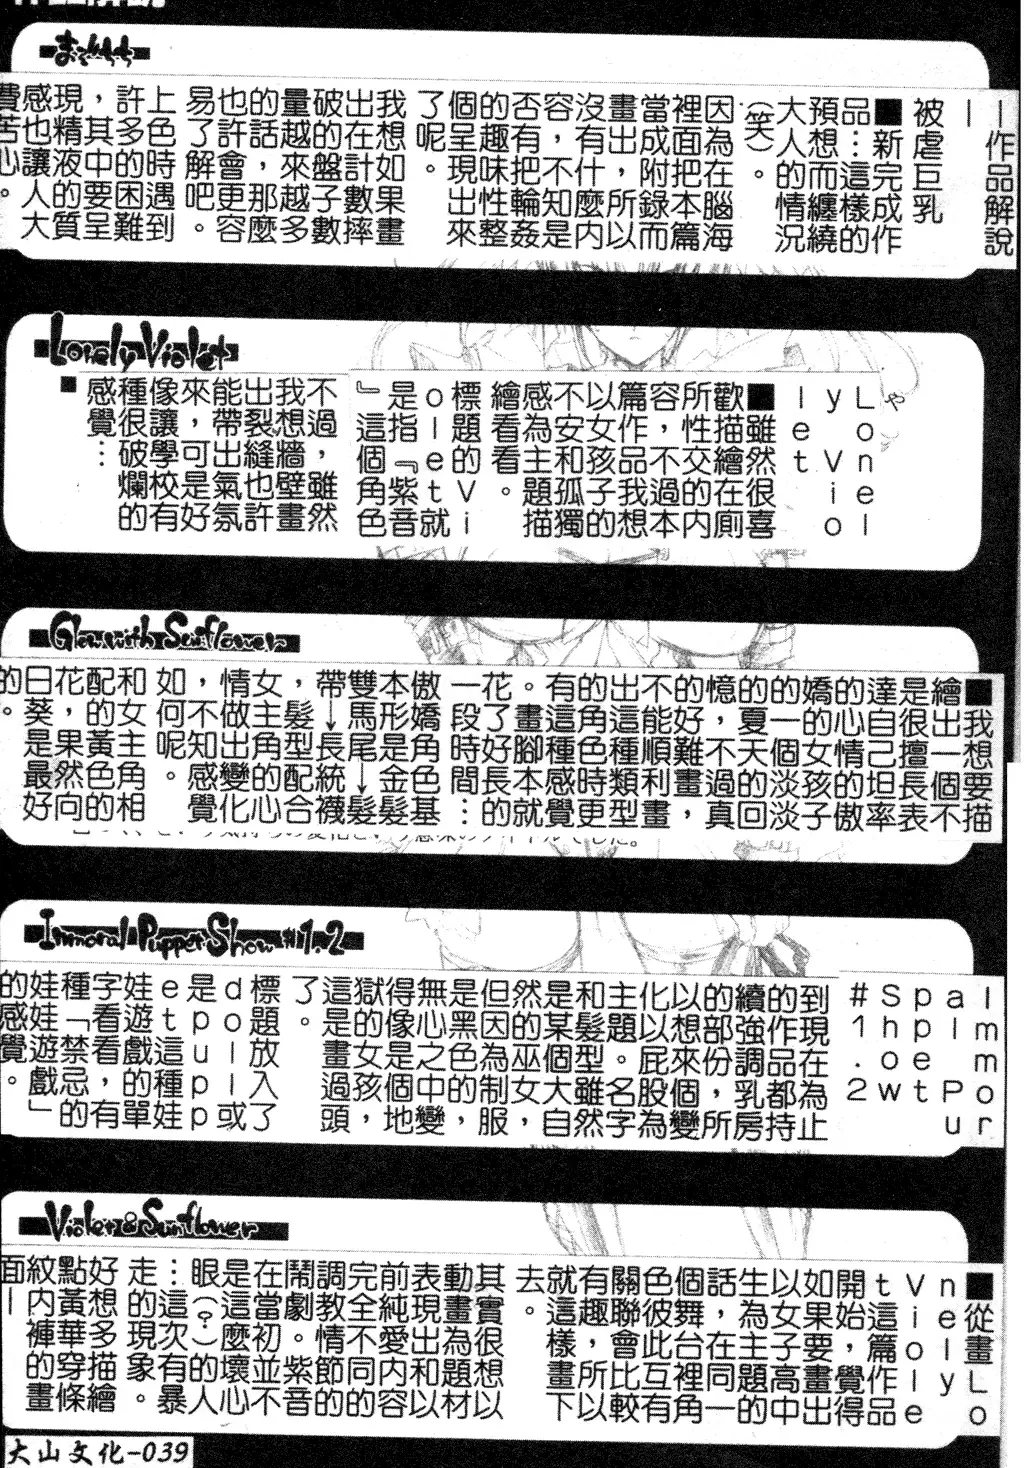 まぞちち
—作品解說
—
被虐巨乳
■新完成作
品…這樣的
預想而纏繞
大人的情況
(笑)。
因為在腦海
裡面把本篇
當成附錄而
畫出,所以
沒有什麼內
容,不知是
否有把輪姦
的趣味性整
個呈現出來
了呢。
我想如果畫
出在計數摔
破的盤子數
量越來越多
的話,那麼
也許會更容
易了解吧。
上色時遇到
許多的困難
,其中要呈
現精液的質
感也讓人大
費苦心。
Lonely Violet
Lonel
y Vio
let
■雖然很喜
歡描繪在廁
所性交的內
容,不過本
篇作品我想
以女孩子的
不安和孤獨
感為主題描
繪看看。
標題的Vi
olet就
是指『紫音
』這個角色
不過,雖然
我想牆壁畫
出裂縫也許
能帶出氣氛
來,可是好
像讓學校有
種很破爛的
感覺…
■
Glow with Sunflower
■我想要描
繪出一個不
是很擅長表
達自己坦率
的心情的傲
嬌的女孩子
的一個淡淡
的夏天的回
憶,不過真
的好難畫,
不能順利畫
出這種類型
的角色時更
有這種感覺
。畫腳本就
花了好長的
一段時間…
傲嬌角色基
本形是金髮
雙馬尾↓髮
帶↓長統襪
,髮型配合
女主角的心
情做出變化
,不知感覺
如何呢。
和女主角相
配的黃色的
花,果然向
日葵是最好
的。
Inmoral Puppet Show #1.2
Immor
al Pu
ppet
Show
#1.2
到現在為止
的作品都持
續強調乳房
的部份,所
以想來個變
化以屁股為
主題。名字
和髮型雖然
是某個大自
然的巫女,
但因為制服
是黑色的,
無心之中變
得像是個地
獄的女孩,
這是畫過頭
了。
標題放入了
doll或
是pupp
et這種娃
娃遊戲的單
字看看,有
種「禁忌的
娃娃遊戲」
的感覺。
Violet & Sunflower
■從畫Lo
nely
Viole
t這篇作品
開始,覺得
如果要畫出
以女子高中
生為主題的
話,在同一
個舞台裡角
色彼此互有
關聯會比較
有趣,所以
就這樣畫下
去。
其實很想以
動畫為題材
表現出和以
前純愛內容
完全不同的
調教情節的
鬧劇。紫音
在當初並不
是這麼壞心
眼(?)的人
…這次有暴
走的現象。
好想多描繪
點黃華穿條
紋內褲的畫
面—
大山文化-039